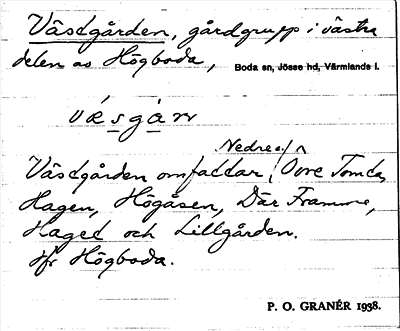 Västgården, gårdgrupp i västra
delen av Högboda, Boda sn, Jösse hd, Värmlands l.
Nedre o/
Västgården omfattar Övre Tomta,
Hagen, Högåsen, Där Framme,
Haget och Lillgården.
Jfr Högboda.
P. O. GRANÉR 1938.